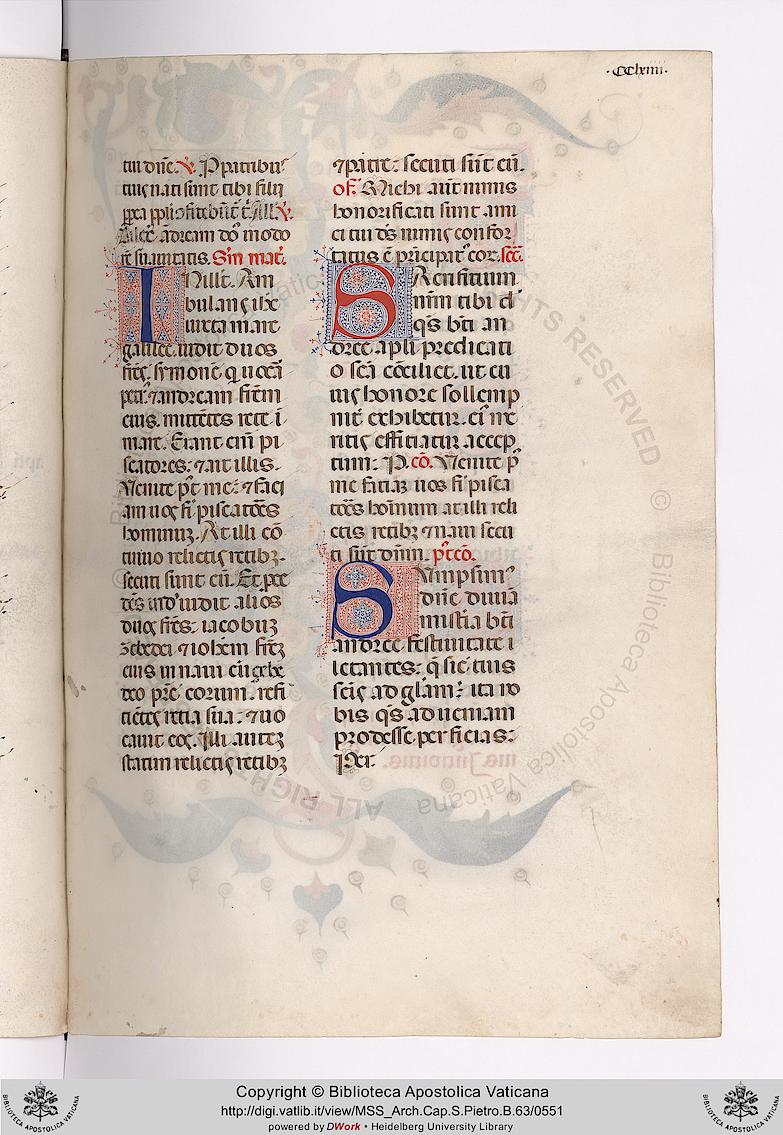 ·CClxiiii·
tui dñe. ꝟ. P patribꝰ
tuis nati sunt tibi filii
Alla. ꝟ.
Dilex̄ ãdream dñs ī odo
rē suauitatis. Sm̄ mat̄.
In illo t̄. Am
bulans ihc
iuxta mare
galilee. uidit duos
fr̄es. symonē qui uocat̄
petrꝰ. ⁊ andream fr̄em
eius. mittētes rete ī
mare. Erant eni pi
scatores. ⁊ ait illis.
Uenite pꝰt me. ⁊ faci
am uos fi piscatores
hominuȝ. At illi cō
tinuo relictis retibȝ.
secuti sunt eū. Et pce
dēs inde uidit alios
duos fr̄es. iacobuȝ
ȝebedei ⁊ ioħem fr̄eȝ
eius in naui cū ȝebe
deo pr̄e eorum. refi
ciētes retia sua. ⁊ uo
cauit eos. Illi auteȝ
statim relictis retibȝ
⁊ patre: secuti sūt eū.
of. Michi aut nimis
honorificati sunt ami
ci tui ds̄ nimis confor
tatus ē prīcipatꝰ eor. secr̄.
Sacrificium
nr̄m tibi d
q̄s bt̄i an
dree apl̄i predicati
o sc̄a cōciliet. ut cu
ius honore sollemp
nit̄ exhibetur. eiꝰ me
ritis efficiatur accep
tum. P. cō. Uenite pꝰ
me faciaȝ uos fi pisca
tores hominum at illi reli
ctis retibȝ ⁊ naui secu
ti sūt dñm. pꝰtcō.
Sumpsimꝰ
dñe diuīa
mist̄ia bt̄i
andree festiuitate l
letantes: q̄ sic̄ tuis
sc̄is ad gl̄am: ita no
bis q̄s ad ueniam
prodesse perficias:
Per.
Copyright © Biblioteca Apostolica Vaticana
http://digi.vatlib.it/view/MSS_Arch.Cap.S.Pietro.B.63/0551
powered by DWork • Heidelberg University Library
BIBLIOTECA APOSTOLICA VATICANA
BIBLIOTECA APOSTOLICA VATICANA
ALL RIGHTS RESERVED © Biblioteca Apostolica Vaticana